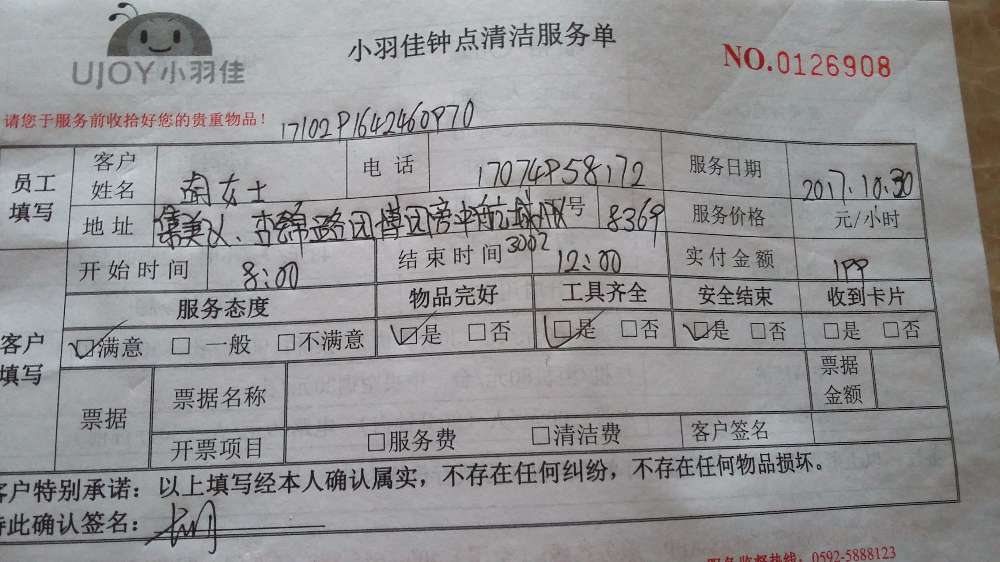 UJOY小羽佳
小羽佳钟点清洁服务单
NO.0126908
请您于服务前收拾好您的贵重物品！
1710291642460970
员工填写 客户姓名 女士 电话 17074958172 服务日期 2017.10.30
地址 集美 杏锦路园博园旁中航城 号 8369 服务价格 元/小时
3002
开始时间 8:00 结束时间 12:00 实付金额 199
客户填写 服务态度 物品完好 工具齐全 安全结束 收到卡片
☑满意 □一般 □不满意 ☑是 □否 ☑是 □否 ☑是 □否 □是 □否
票据 票据名称 票据金额
开票项目 □服务费 □清洁费 客户签名
客户特别承诺：以上填写经本人确认属实，不存在任何纠纷，不存在任何物品损坏。
特此确认签名：
服务监督热线：0592-5888123